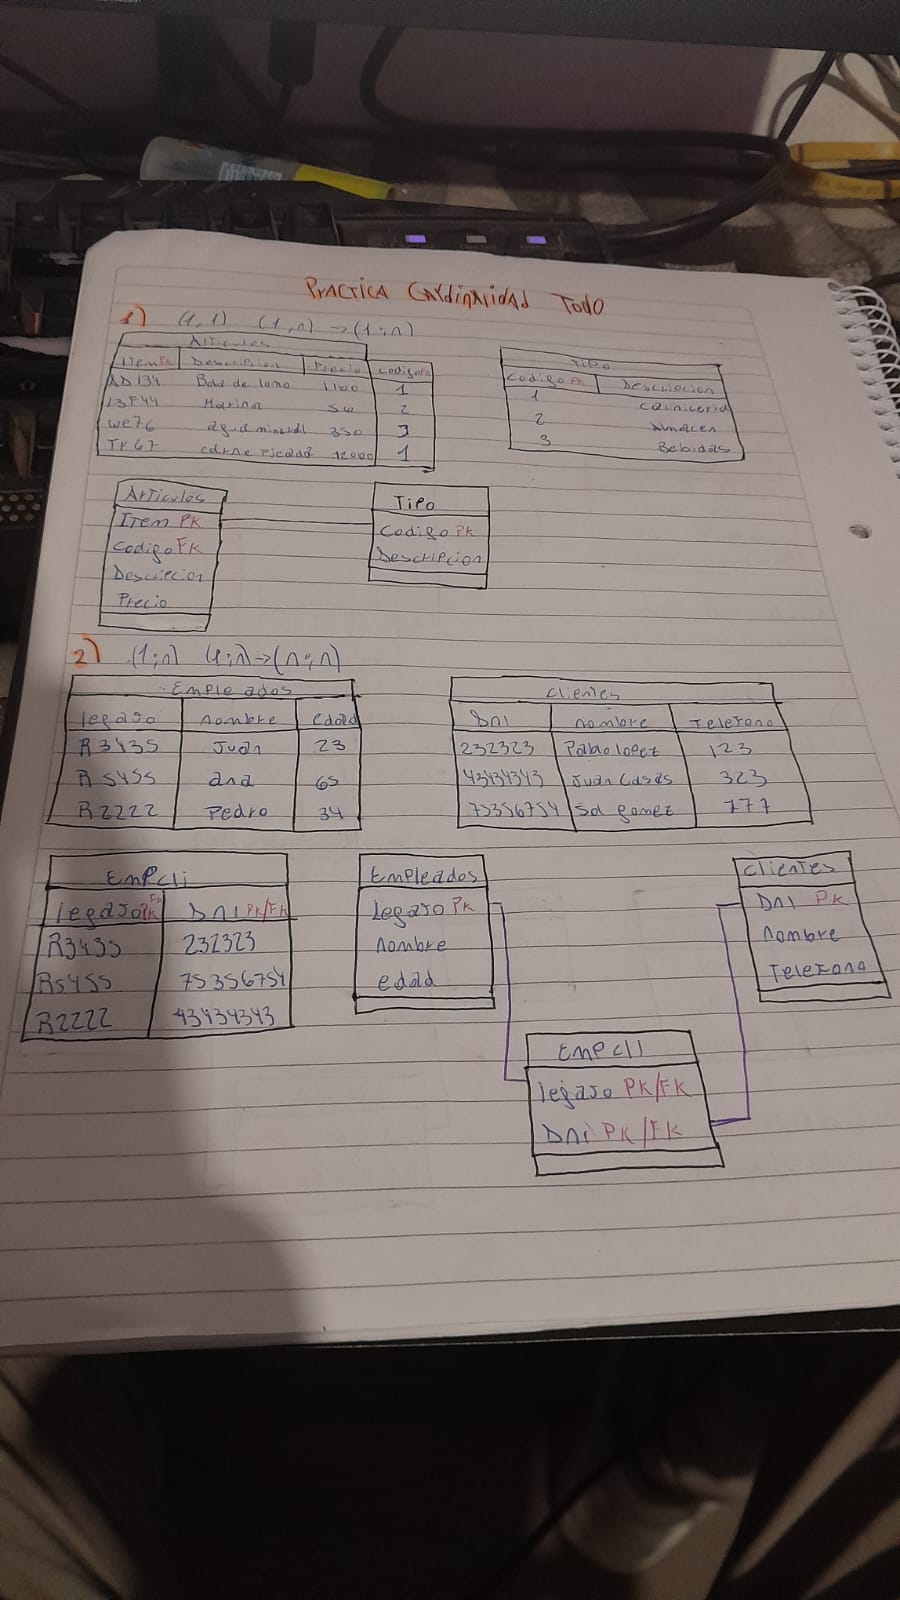 PRACTICA Cardinalidad Todo
1) (1,1) (1,n) → (1;n)
Articulos
Item PK Descripcion Precio Codigo
AD134 Bola de lomo 1100 1
13F44 Harina 2
We76 agua mineral 350 3
TR67 carne picada 12000 1
Tipo
Codigo PK Descripcion
1 Carniceria
2 Almacen
3 Bebidas
Articulos
Item PK
Codigo FK
Descripcion
Precio
Tipo
Codigo PK
Descripcion
2) (1;n) (1;n) → (n;n)
Empleados
legajo nombre edad
R3435 Juan 23
R5455 ana 65
R2222 Pedro 34
Clientes
DNI nombre Telefono
232323 Pablo lopez 123
43434343 Juan Casas 323
75356754 Sol gomez 777
Empcli
legajo PK FK DNI PK/FK
R3435 232323
R5455 75356754
R2222 43434343
Empleados
legajo PK
nombre
edad
Clientes
DNI PK
nombre
Telefono
Empcli
legajo PK/FK
DNI PK/FK